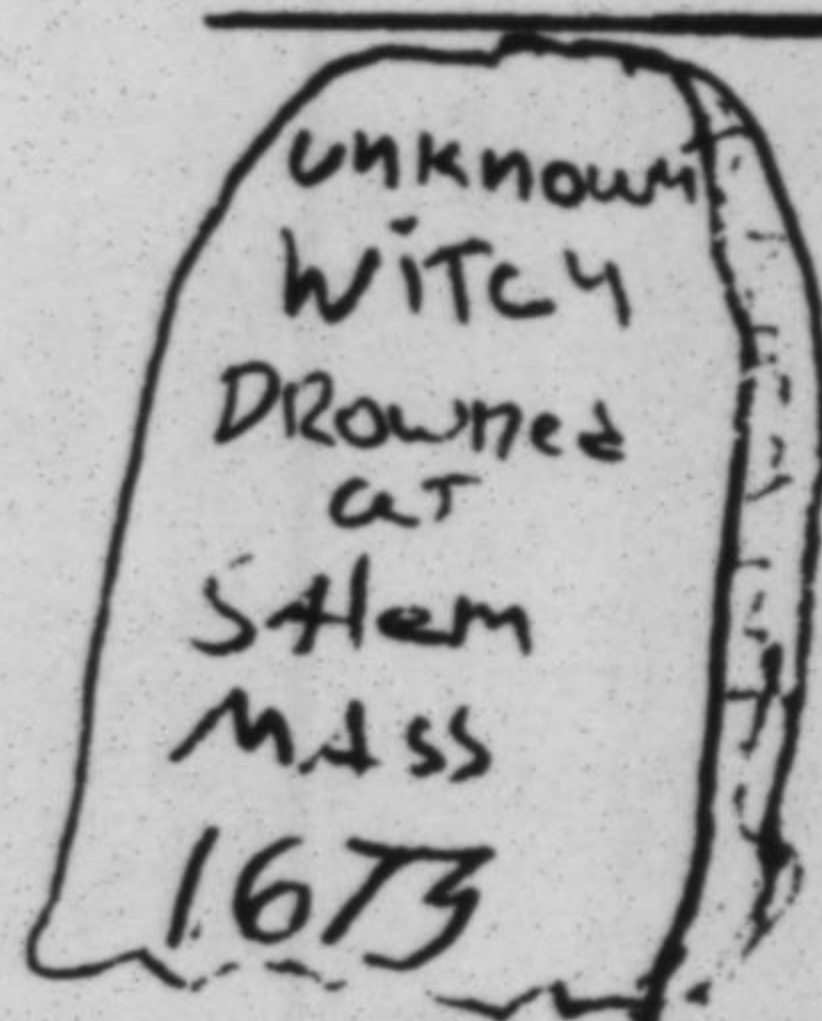 unknown
WiTCH
DROWned
aT
SAlem
MASS
1673